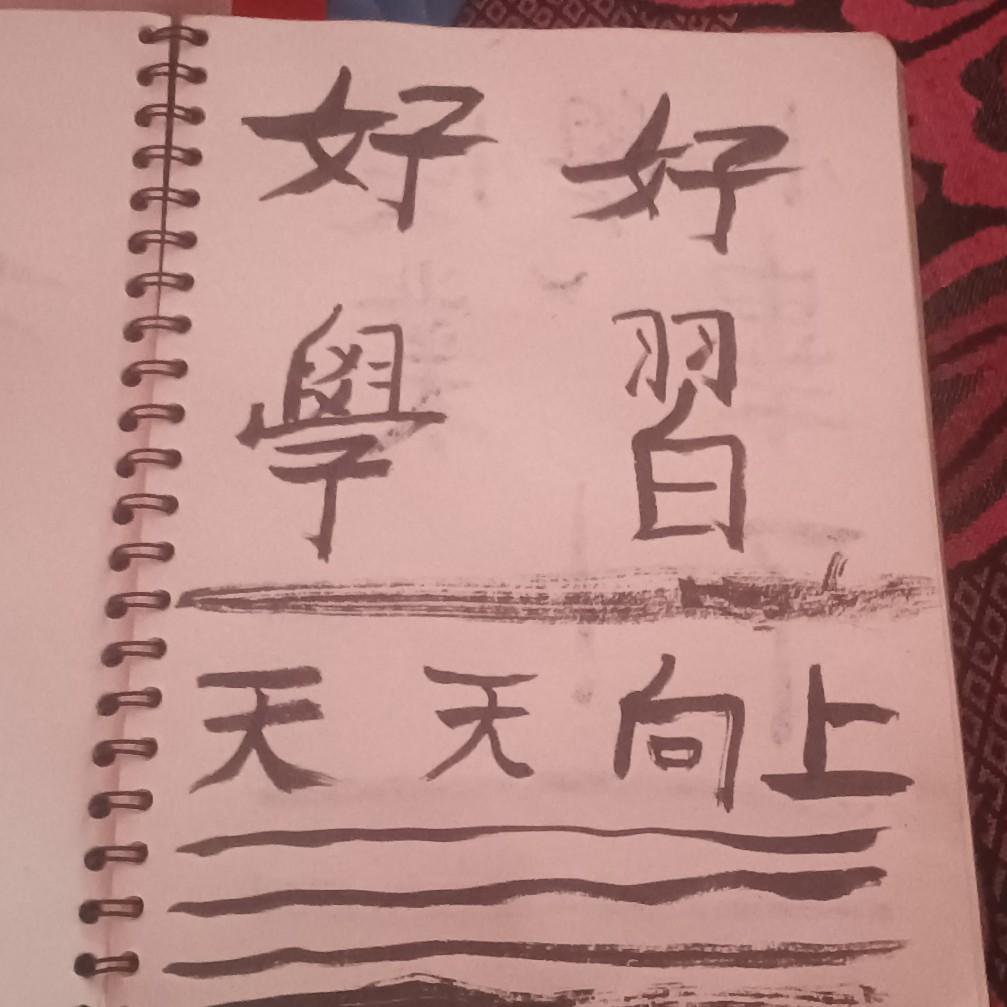 好好
學習
天天向上